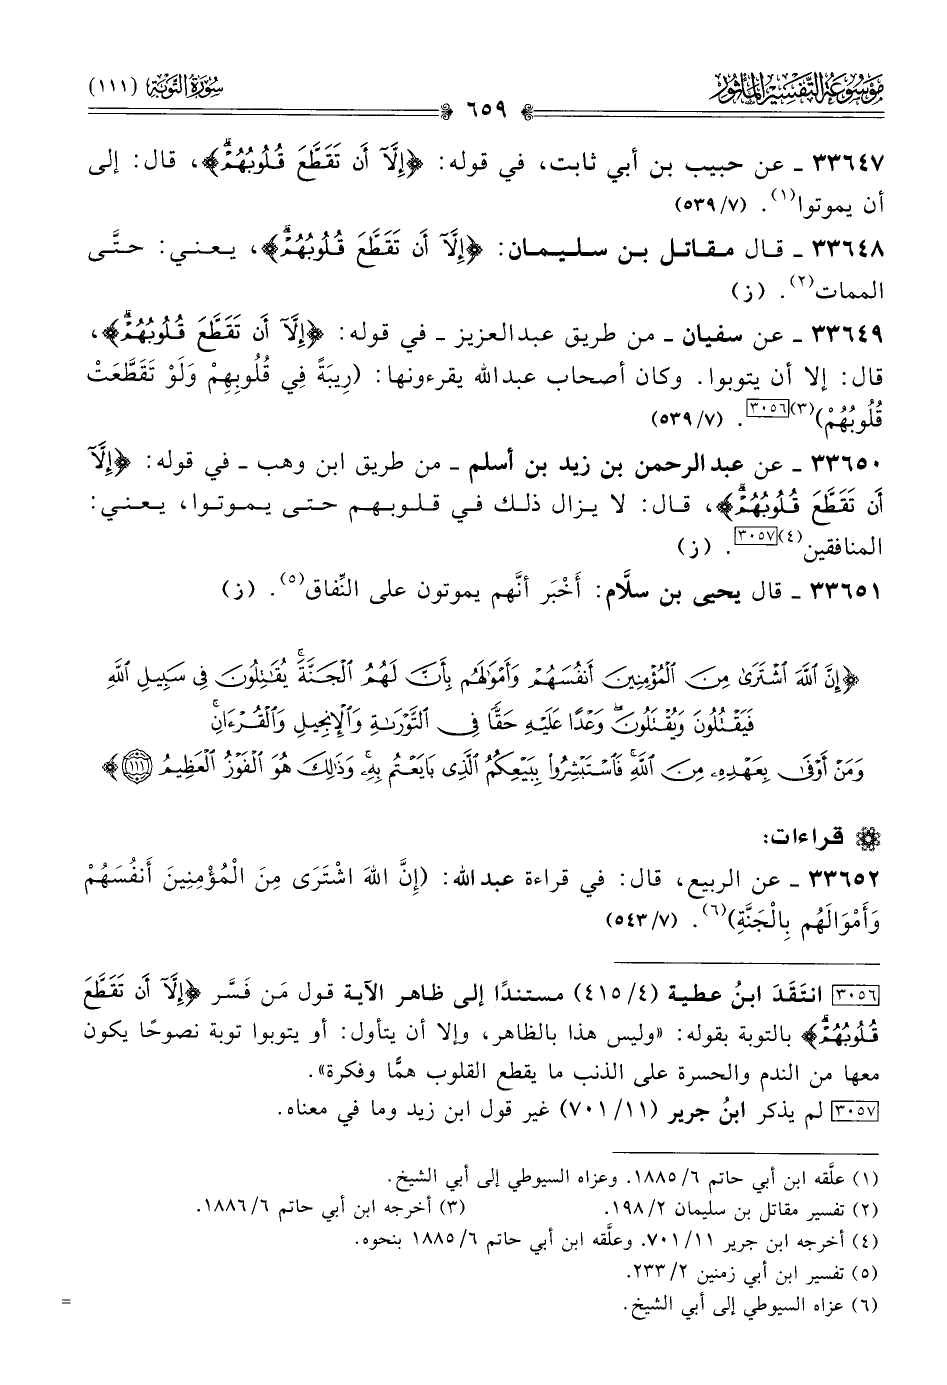 مَوْسُوعَة التَّفْسِير المَأْثُور
سُورَةُ التَّوْبَةِ (١١١)
٦٥٩
٣٣٦٤٧ ـ عن حبيب بن أبي ثابت، في قوله: ﴿إِلَّآ أَن تَقَطَّعَ قُلُوبُهُمْۗ﴾، قال: إلى
أن يموتوا(١). (٥٣٩/٧)
٣٣٦٤٨ ـ قال مقاتل بن سليمان: ﴿إِلَّآ أَن تَقَطَّعَ قُلُوبُهُمْۗ﴾، يعني: حتَّى
الممات(٢). (ز)
٣٣٦٤٩ ـ عن سفيان ـ من طريق عبدالعزيز ـ في قوله: ﴿إِلَّآ أَن تَقَطَّعَ قُلُوبُهُمْۗ﴾،
قال: إلا أن يتوبوا. وكان أصحاب عبدالله يقرءونها: (رِيبَةً فِي قُلُوبِهِمْ وَلَوْ تَقَطَّعَتْ
قُلُوبُهُمْ)(٣)[٣٠٥٦]. (٥٣٩/٧)
٣٣٦٥٠ ـ عن عبدالرحمن بن زيد بن أسلم ـ من طريق ابن وهب ـ في قوله: ﴿إِلَّآ
أَن تَقَطَّعَ قُلُوبُهُمْۗ﴾، قال: لا يزال ذلك في قلوبهم حتى يموتوا، يعني:
المنافقين(٤)[٣٠٥٧]. (ز)
٣٣٦٥١ ـ قال يحيى بن سلَّام: أَخْبَر أنَّهم يموتون على النِّفاق(٥). (ز)
﴿إِنَّ ٱللَّهَ ٱشْتَرَىٰ مِنَ ٱلْمُؤْمِنِينَ أَنفُسَهُمْ وَأَمْوَٰلَهُم بِأَنَّ لَهُمُ ٱلْجَنَّةَۚ يُقَٰتِلُونَ فِى سَبِيلِ ٱللَّهِ
فَيَقْتُلُونَ وَيُقْتَلُونَۖ وَعْدًا عَلَيْهِ حَقًّا فِى ٱلتَّوْرَىٰةِ وَٱلْإِنجِيلِ وَٱلْقُرْءَانِۚ
وَمَنْ أَوْفَىٰ بِعَهْدِهِۦ مِنَ ٱللَّهِۚ فَٱسْتَبْشِرُوا۟ بِبَيْعِكُمُ ٱلَّذِى بَايَعْتُم بِهِۦۚ وَذَٰلِكَ هُوَ ٱلْفَوْزُ ٱلْعَظِيمُ ۝١١١﴾
قراءات:
٣٣٦٥٢ ـ عن الربيع، قال: في قراءة عبدالله: (إِنَّ اللهَ اشْتَرَى مِنَ الْمُؤْمِنِينَ أَنفُسَهُمْ
وَأَمْوَالَهُم بِالْجَنَّةِ)(٦). (٥٤٣/٧)
[٣٠٥٦] انتَقَدَ ابنُ عطية (٤١٥/٤) مستندًا إلى ظاهر الآية قول مَن فَسَّر ﴿إِلَّآ أَن تَقَطَّعَ
قُلُوبُهُمْۗ﴾ بالتوبة بقوله: «وليس هذا بالظاهر، وإلا أن يتأول: أو يتوبوا توبة نصوحًا يكون
معها من الندم والحسرة على الذنب ما يقطع القلوب همًّا وفكرة».
[٣٠٥٧] لم يذكر ابنُ جرير (٧٠١/١١) غير قول ابن زيد وما في معناه.
(١) علَّقه ابن أبي حاتم ١٨٨٥/٦. وعزاه السيوطي إلى أبي الشيخ.
(٢) تفسير مقاتل بن سليمان ١٩٨/٢. (٣) أخرجه ابن أبي حاتم ١٨٨٦/٦.
(٤) أخرجه ابن جرير ٧٠١/١١. وعلَّقه ابن أبي حاتم ١٨٨٥/٦ بنحوه.
(٥) تفسير ابن أبي زمنين ٢٣٣/٢.
(٦) عزاه السيوطي إلى أبي الشيخ.
=